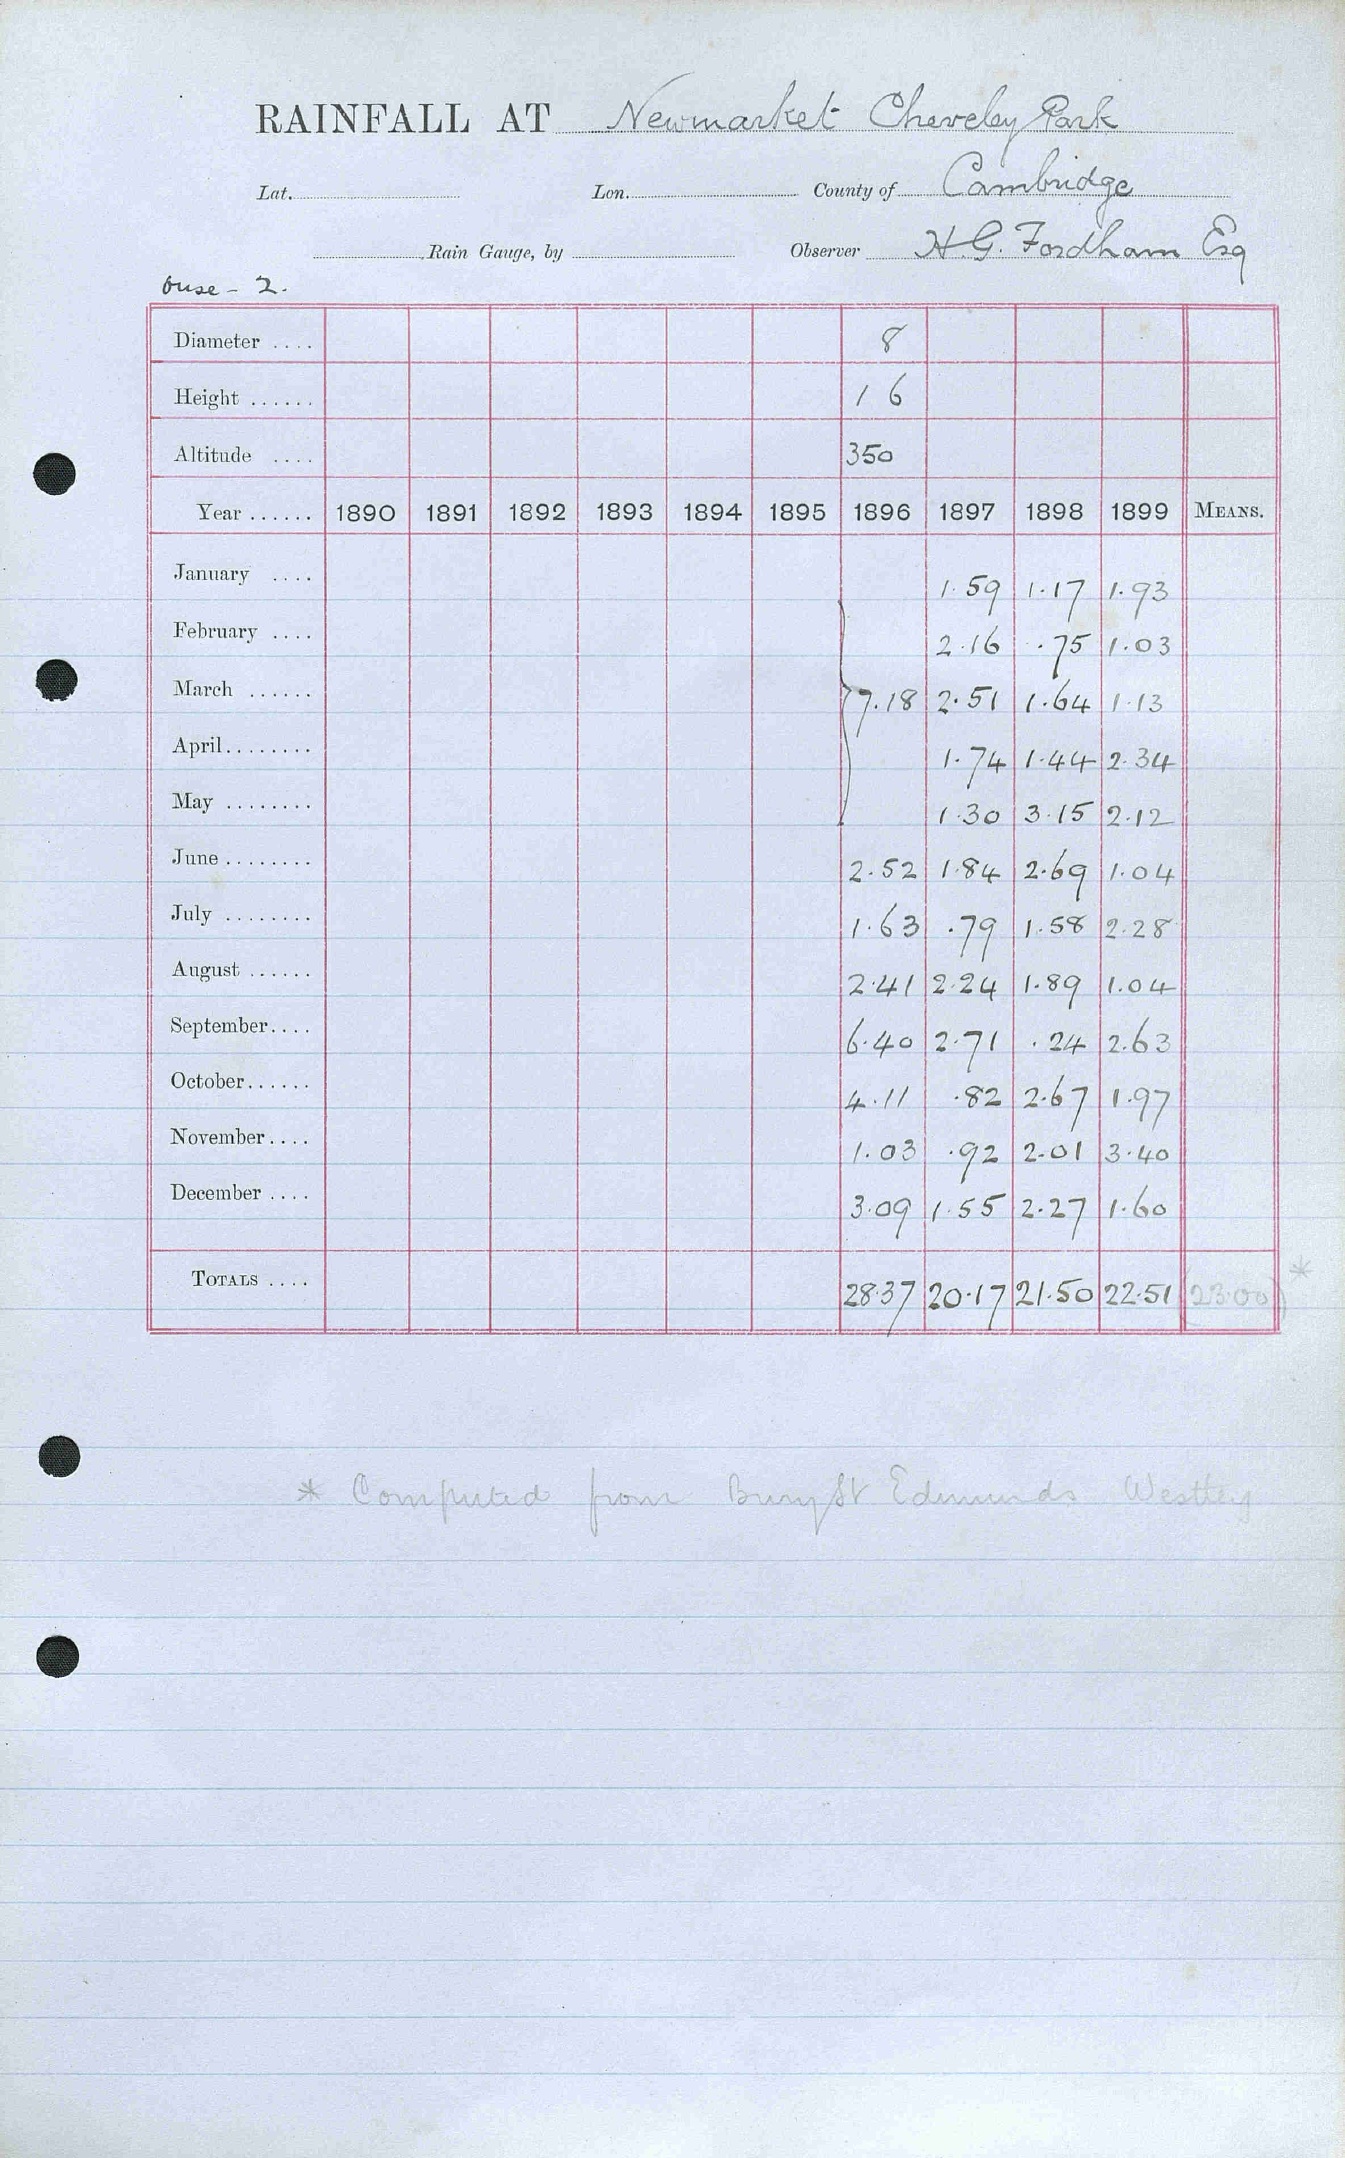 RAINFALL AT Newmarket Cheveley Park
Lat. Lon. County of Cambridge
Rain Gauge, by Observer H.G. Fordham Esq
Ouse - 2.
Diameter .... 8
Height ...... 1 6
Altitude .... 350
Year ...... 1890 1891 1892 1893 1894 1895 1896 1897 1898 1899 MEANS.
January .... 1.59 1.17 1.93
February .... 2.16 .75 1.03
March ...... 7.18 2.51 1.64 1.13
April........ 1.74 1.44 2.34
May ........ 1.30 3.15 2.12
June ........ 2.52 1.84 2.69 1.04
July ........ 1.63 .79 1.58 2.28
August ...... 2.41 2.24 1.89 1.04
September.... 6.40 2.71 .24 2.63
October...... 4.11 .82 2.67 1.97
November.... 1.03 .92 2.01 3.40
December .... 3.09 1.55 2.27 1.60
TOTALS .... 28.37 20.17 21.50 22.51 (23.00) *
* Computed from Bury St Edmunds Westley